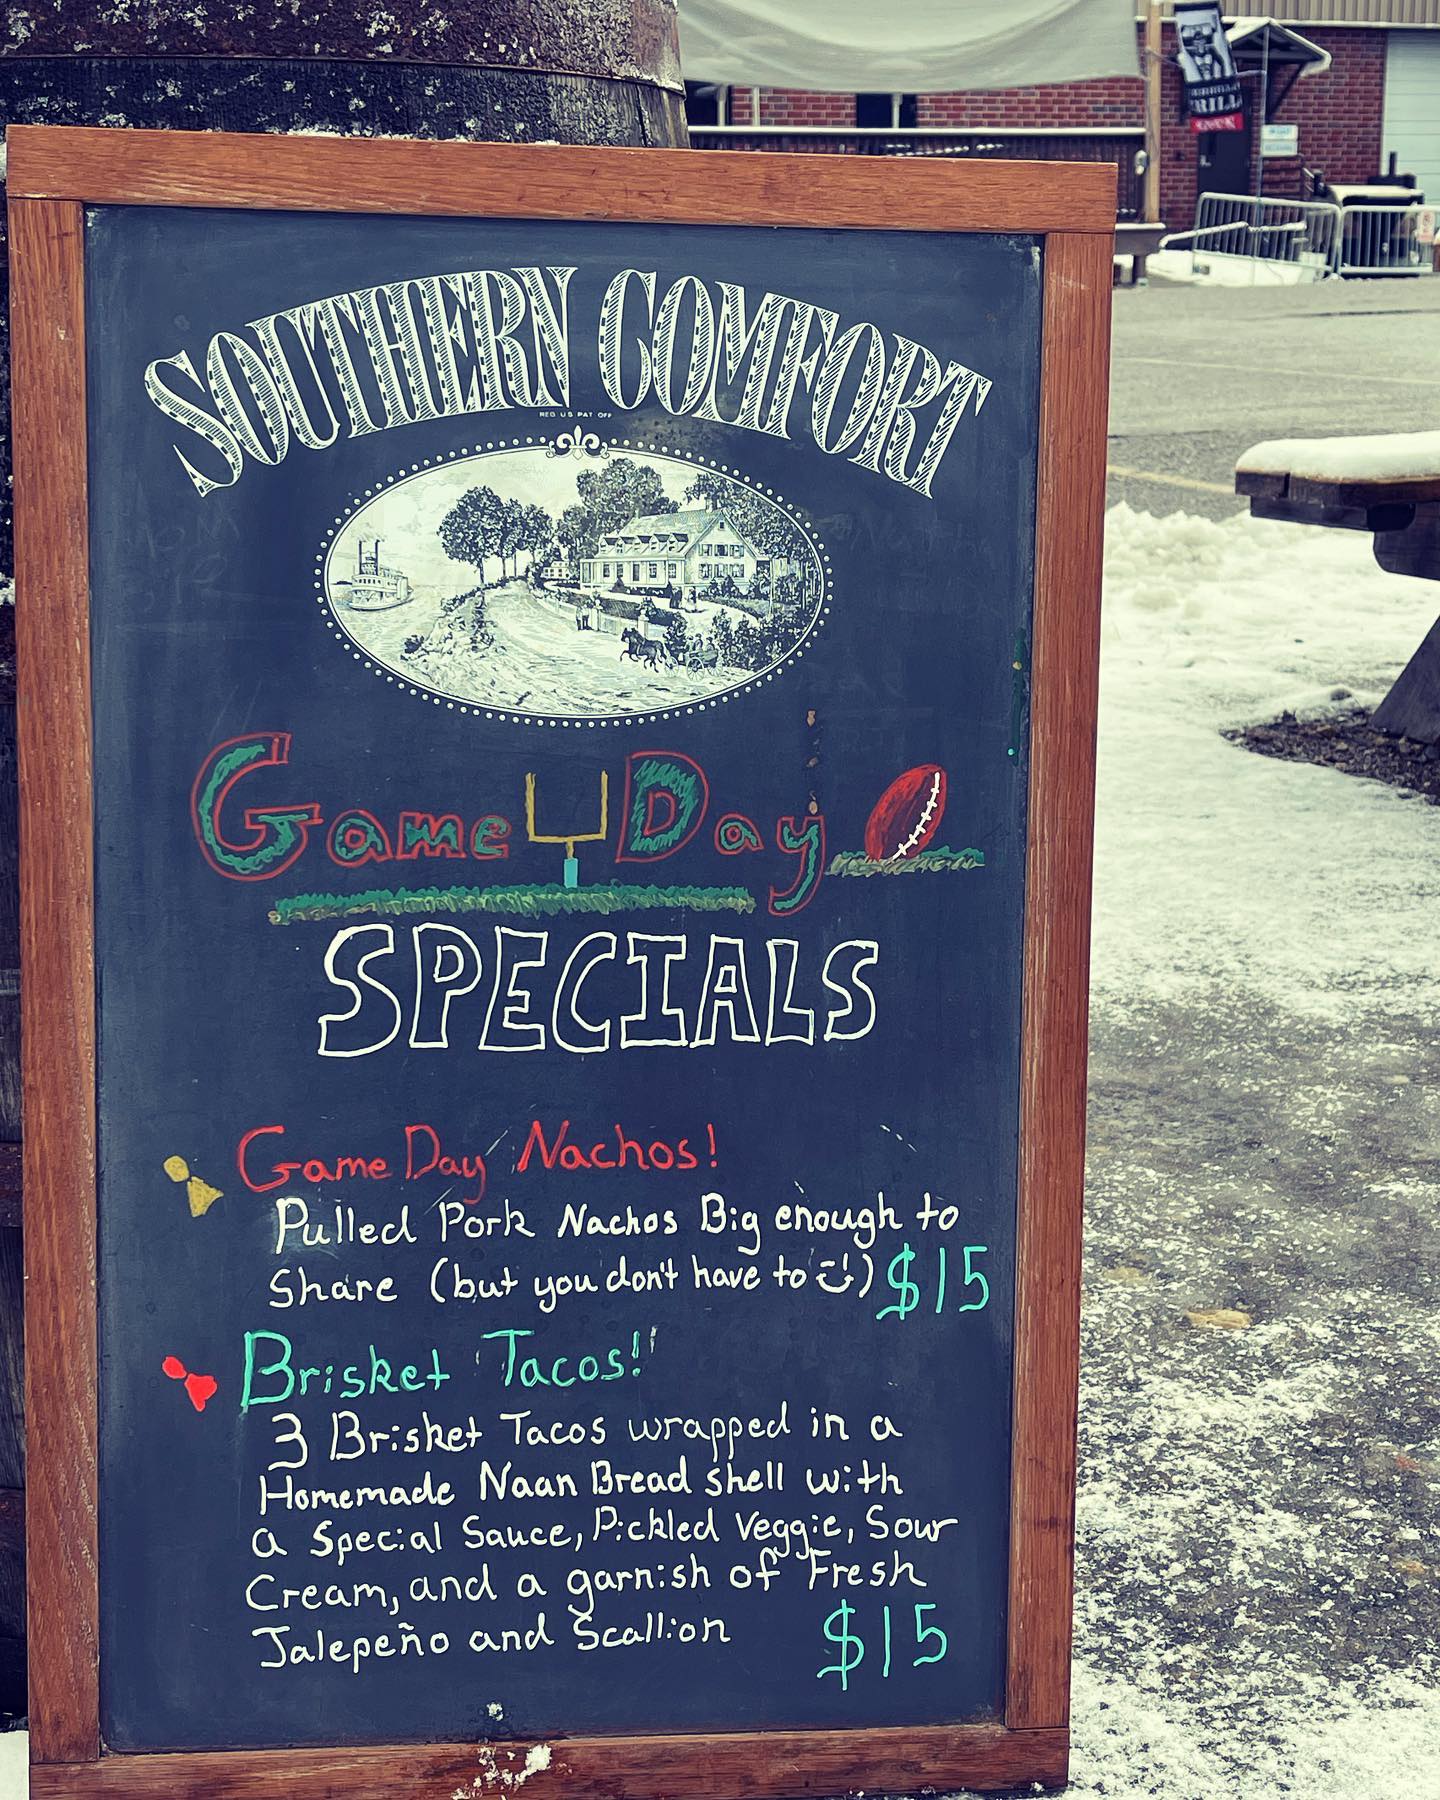 SOUTHERN COMFORT
REG U S PAT OFF
Game Day
SPECIALS
Game Day Nachos!
Pulled Pork Nachos Big enough to
Share (but you don't have to ) $15
Brisket Tacos!
3 Brisket Tacos wrapped in a
Homemade Naan Bread shell with
a Special Sauce, Pickled Veggie, Sour
Cream, and a garnish of Fresh
Jalepeño and Scallion $15